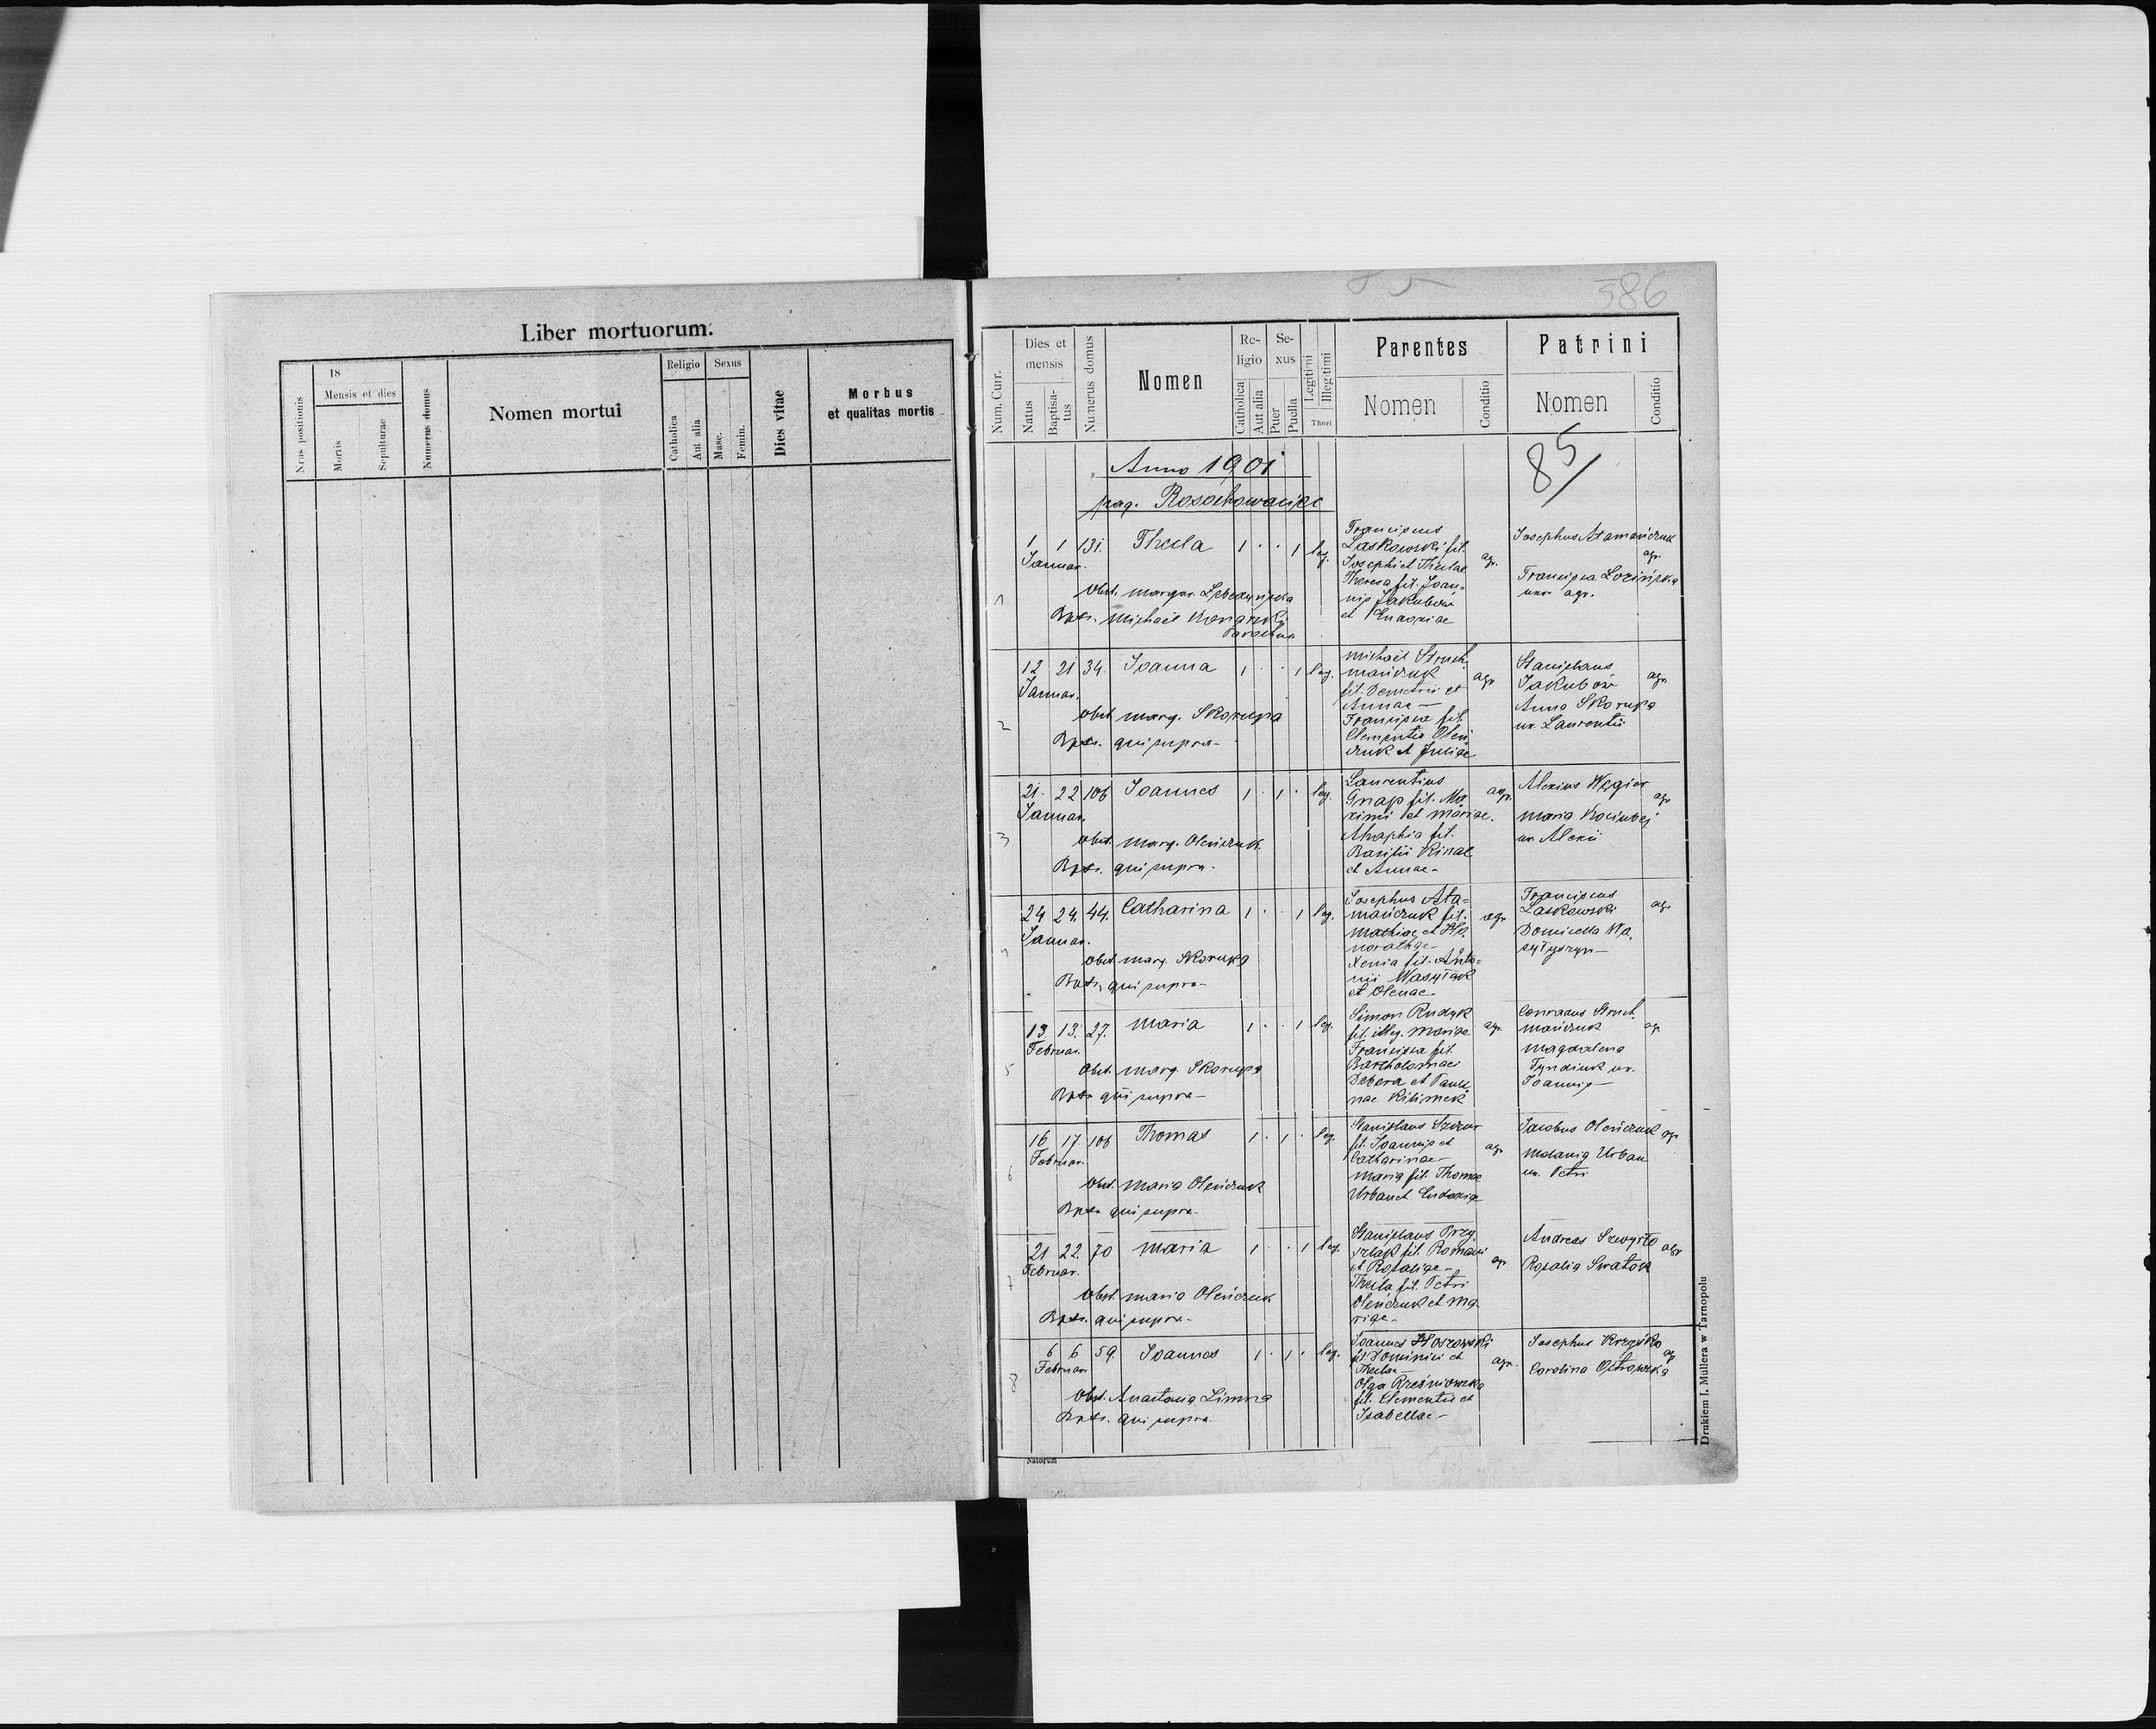 Liber mortuorum.
Nrus positionis
18
Mensis et dies
Mortis
Sepulturae
Numerus domus
Nomen mortui
Religio
Catholica
Aut alia
Sexus
Masc.
Femin.
Dies vitae
Morbus
et qualitas mortis
586
Num. Curr.
Dies et
mensis
Natus
Baptisa-
tus
Numerus domus
Nomen
Re-
ligio
Catholica
Aut alia
Se-
xus
Puer
Puella
Legitimi
Illegitimi
Thori
Parentes
Nomen
Conditio
Patrini
Nomen
Conditio
85
Anno 1901
pag. Rosochowaciec
1
1 1 131. Thecla 1 . . 1 leg.
Januar.
Obst. margar.
Bapt. Michaël
Parochus
Franciscus
Laskowski fil.
Josephi et Theclae
Theresa fil. Joan-
nis Jakubów
et
agr.
Josephus Atamańczuk
agr.
Francisca
uxor agr.
2
12 21 34. Joanna 1 . . 1 leg.
Januar.
Obst. marg. Skorupa
Bapt. qui supra-
Michaël Struch-
mańczuk
fil. Demetrii et
Annae-
Francisca fil.
Clementis Oleń
czuk et Juliae
agr.
Stanislaus
Jakubów
agr.
Anna Skorupa
ux. Laurentii
3
21. 22 106 Joannes 1 . 1 . leg.
Januar.
Obst. marg. Oleńczuk
Bapt. qui supra-
Laurentius
Gnap fil. Ma-
ximi et mariae.
fil.
Basilii Kinal
et Annae-
agr.
Alexius Węgier
agr.
Maria
ux. Alexii
4
24 24. 44. Catharina 1 . . 1 leg.
Januar.
Obst. marg. Skorupa
Bapt. qui supra-
Josephus Ata-
mańczuk fil.
Mathiae et Ho-
norathae-
Xenia fil. Anto-
nii Wasylak
et Olenae-
agr.
Franciscus
Laskowski
agr.
Domicella Wa-
syłyszyn-
5
13. 13. 27. Maria 1 . . 1 leg.
Februar.
Obst. marg. Skorupa
Bapt. qui supra-
Simon Rudyk
fil. illeg. Mariae
Francisca fil.
Bartholomaei
Debera et Pauli-
nae Kilimek
agr.
Conradus Struch-
mańczuk
agr.
Magdalena
Tyndiuk ux.
Joannis-
6
16 17. 106 Thomas 1 . 1 . leg.
Februar.
Obst. maria Oleńczuk
Bapt. qui supra-
Stanislaus Szczur
fil. Joannis et
Catharinae-
Maria fil. Thomae
Urban et Eudoxiae
agr.
Jacobus Oleńczuk agr.
Melania Urban
ux. Petri
7
21 22. 70 Maria 1 . . 1 leg.
Februar.
Obst. maria Oleńczuk
Bapt. qui supra-
Stanislaus Przy-
szlak fil. Romani
et Rosaliae-
Thecla fil. Petri
Oleńczuk et Ma-
riae-
agr.
Andreas Szwyrło agr.
Rosalia Swatek
8
6 6 59. Joannes 1 . 1 . leg.
Februar.
Obst. Anastasia Zimna
Bapt. qui supra-
Joannes
fil. Dominici et
Theclae-
Olga Rześniowska
fil. Clementis et
Isabellae-
agr.
Josephus Krzyśko agr.
Carolina Ostrowska
Natorum
Drukiem J. Müllera w Tarnopolu